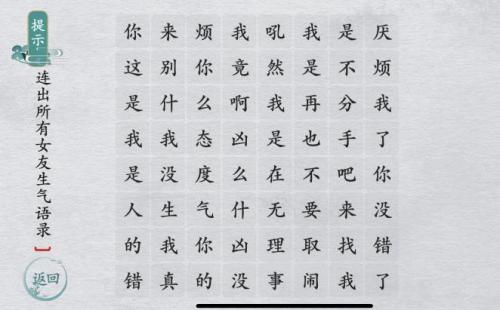 提示
连出所有女友生气语录【】
返回
你来烦我吼我是厌
这别你竟然是不烦
是什么啊我再分我
我我态凶是也手了
是没度么在不吧你
人生气什无要来没
的我你凶理取找错
错真的没事闹我了